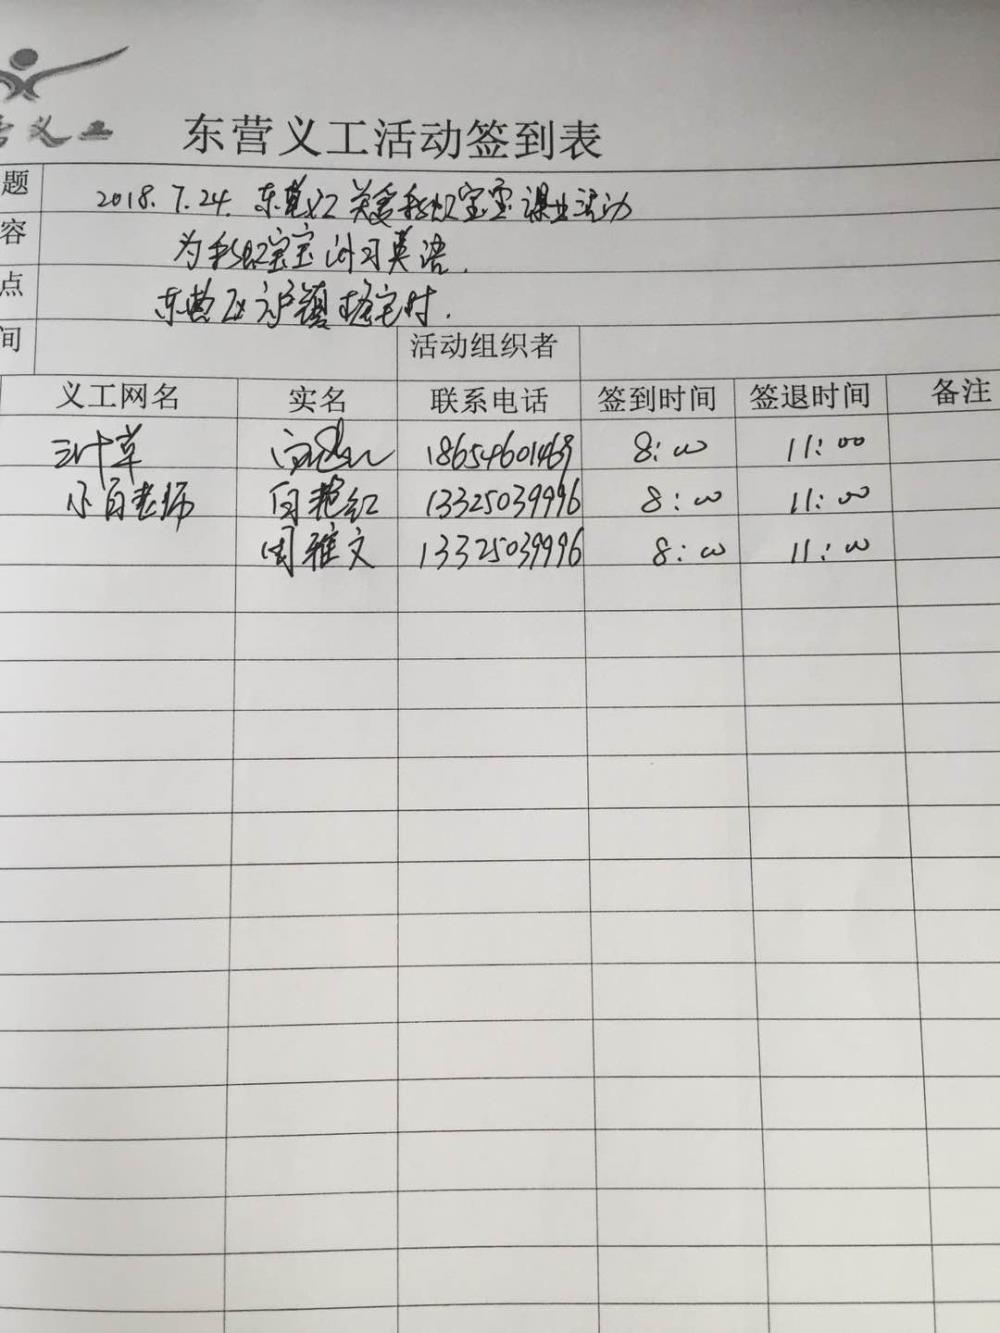 义工
东营义工活动签到表
题 2018.7.24. 东营义工关爱彩虹宝宝课业活动
容 为彩虹宝宝补习英语.
点 东营区六户镇
间 活动组织者
义工网名 实名 联系电话 签到时间 签退时间 备注
三叶草 18654601469 8:00 11:00
小白老师 白艳红 13325039996 8:00 11:00
周雅文 13325039996 8:00 11:00